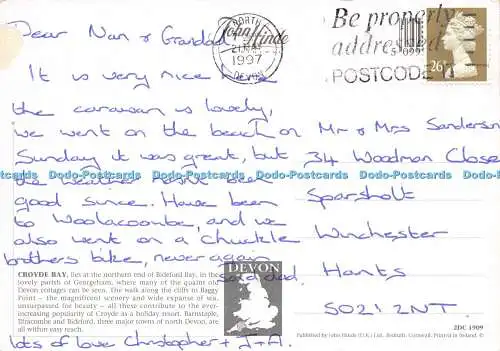 Dear Nan & Grandad
It is very nice
the caravan is lovely,
we went on the beach on
Sunday it was great, but
the weather hasn't been
good since. Have been
to Woolacoombe, and we
also went on a chuckle
brothers bike, never again
said dad.
lots of love Christopher + J+A.
NORTH
1997
DEVON
John Hinde
Be properly
addressed
POSTCODE
26
Mr & Mrs Sanderson
34 Woodman Close
Sparsholt
Winchester
Hants
SO21 2NT.
CROYDE BAY, lies at the northern end of Bideford Bay, in the
lovely parish of Georgeham, where many of the quaint old
Devon cottages can be seen. The walk along the cliff to Baggy
Point – the magnificent scenery and wide expanse of sea,
unsurpassed for beauty – all these contribute to the ever-
increasing popularity of Croyde as a holiday resort. Barnstaple,
Ilfracombe and Bideford, three major towns of north Devon, are
all within easy reach.
DEVON
2DC 1909
Published by John Hinde (U.K.) Ltd., Redruth, Cornwall. Printed in Ireland. ©
www.delcampe.net